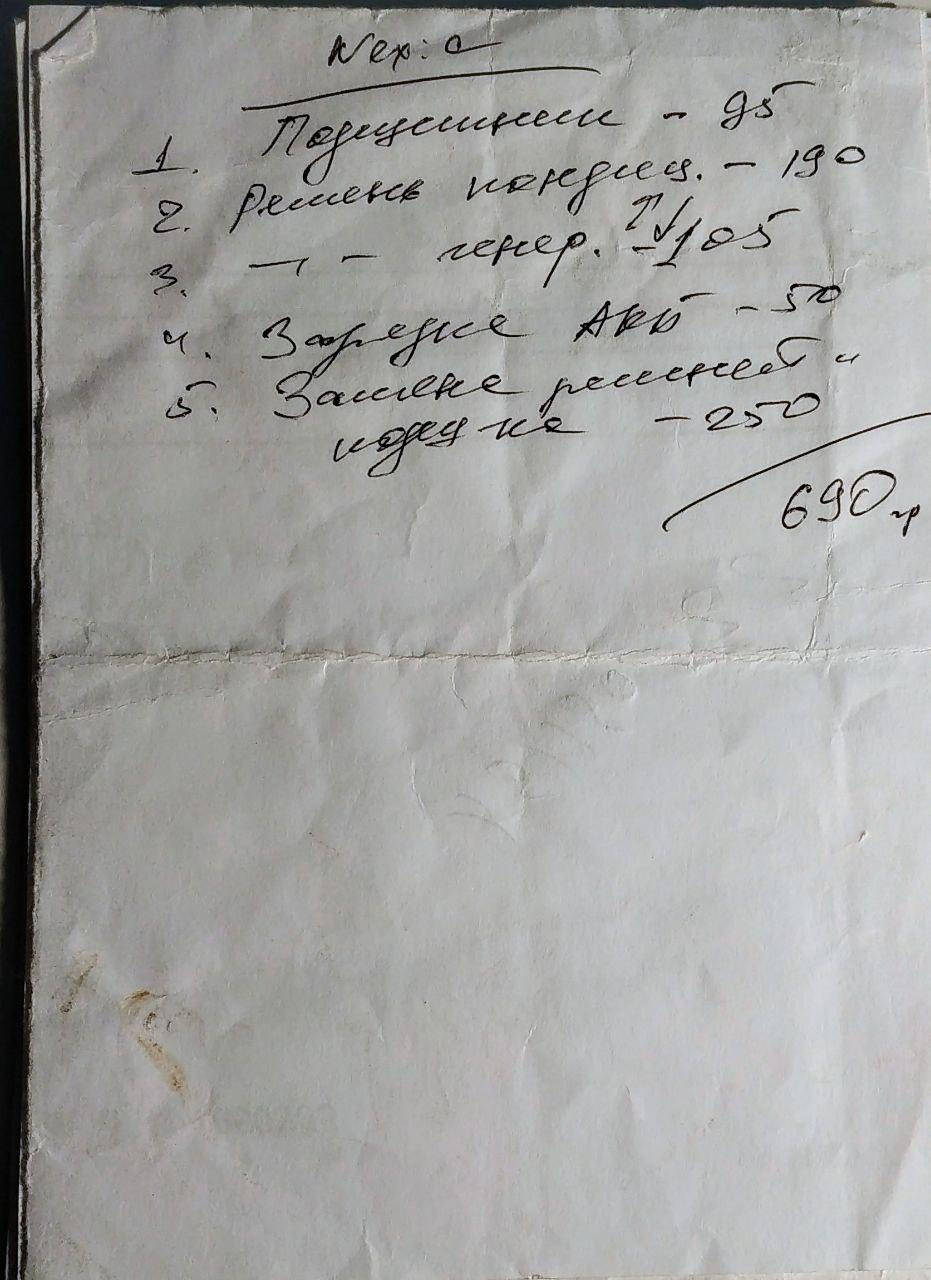 Nexia
1. Подшипник - 95
2. Ремень кондиц. - 190
3. —,,— генер. - 105
4. Зарядка АКБ - 50
5. Замена ремней и
подш-ка - 250
690 гр